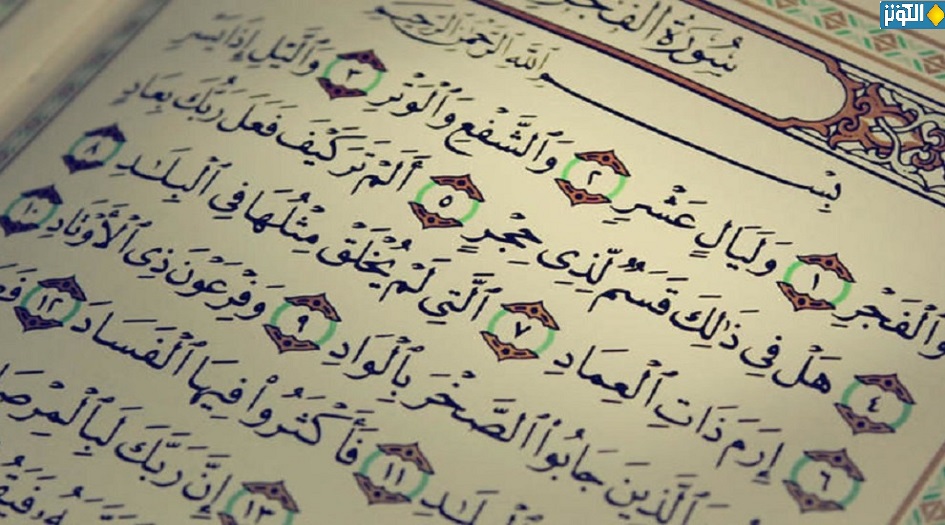 الكوثر
سُورَةُ الفَجْرِ
بِسْمِ ٱللَّهِ ٱلرَّحْمَٰنِ ٱلرَّحِيمِ
وَٱلْفَجْرِ ١ وَلَيَالٍ عَشْرٍ ٢ وَٱلشَّفْعِ وَٱلْوَتْرِ ٣ وَٱلَّيْلِ إِذَا يَسْرِ
٤ هَلْ فِى ذَٰلِكَ قَسَمٌ لِّذِى حِجْرٍ ٥ أَلَمْ تَرَ كَيْفَ فَعَلَ رَبُّكَ بِعَادٍ
٦ إِرَمَ ذَاتِ ٱلْعِمَادِ ٧ ٱلَّتِى لَمْ يُخْلَقْ مِثْلُهَا فِى ٱلْبِلَٰدِ ٨
ٱلَّذِينَ جَابُوا۟ ٱلصَّخْرَ بِٱلْوَادِ ٩ وَفِرْعَوْنَ ذِى ٱلْأَوْتَادِ ١٠
١١ فَأَكْثَرُوا۟ فِيهَا ٱلْفَسَادَ ١٢
١٣ إِنَّ رَبَّكَ لَبِٱلْمِرْصَادِ